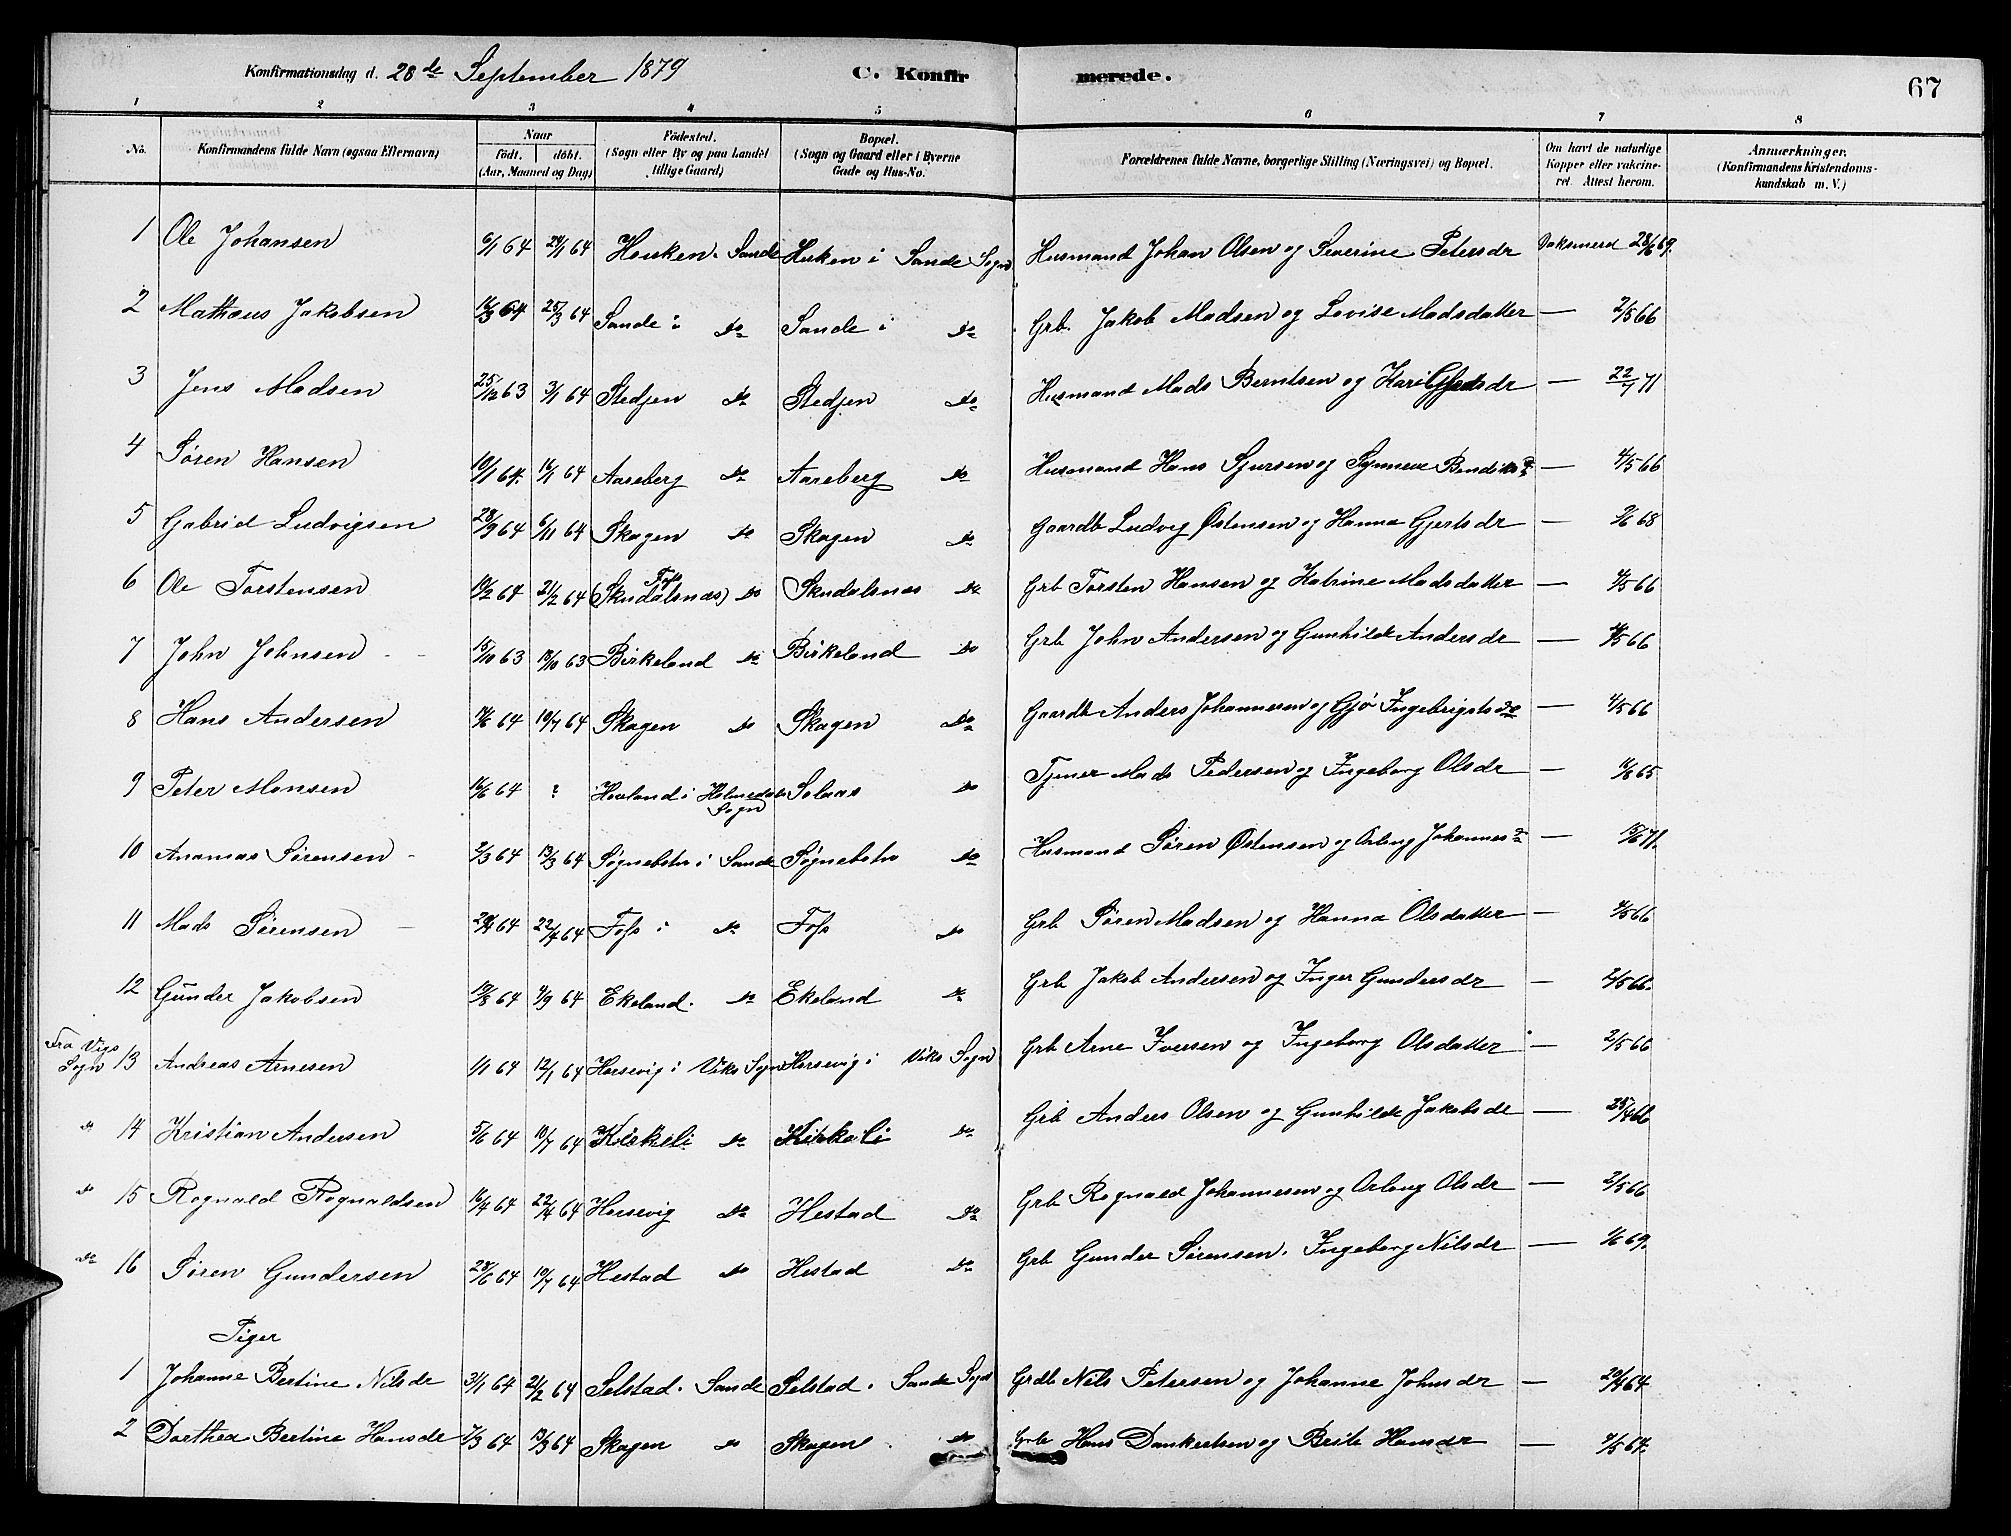 Konfirmationsdag d. 28de September 1879 C. Konfirmerede. 67
1 2 3 4 5 6 7 8
No. Konfirmandens fulde Navn (ogsaa Efternavn) Naar født. døbt. (Aar, Maaned og Dag) Födested. (Sogn eller By og paa Landet tillige Gaard) Bopæl. (Sogn og Gaard eller i Byerne Gade og Hus-No. Forældrenes fulde Navne, borgerlige Stilling (Næringsvei) og Bopæl. Om havt de naturlige Kopper eller vakcineret. Attest herom. Anmærkninger. (Konfirmandens Kristendomskundskab m. V.)
1 Ole Johansen 6/1 64 24/1 64 Hesken. Sande Hesken i Sande Sogn Husmand Johan Olsen og Severine Petersdr Vaksinerd 28/6 69.
2 Mathæus Jakobsen 64 25/3 64 Sande i do Sande i do Grb. Jakob Madsen og Lovise Madsdatter — 2/5 66
3 Jens Madsen 25/12 63 3/1 64 Stedjen do Stedjen do Husmand Mads Berntsen og Kari — 22/7 71
4 Søren Hansen 10/1 64. 16/1 64 Aareberg do Aareberg do Husmand Hans Sjursen og Synneve Bendiksd — 4/5 66
5 Gabriel Ludvigsen 28/9 64 6/11 64 Skagen do Skagen do Gaardb Ludvig Østensen og Hanna Gjertsdr — 68
6 Ole Torstensen 10/2 64 21/2 64 (Skudalsnæs) Foss do Skudalsnæs do Grb Torsten Hansen og Katrine Madsdatter — 4/5 66
7 John Johnsen 15/10 63 18/10 63 Birkeland do Birkeland do Grb John Andersen og Gunhilde Andersdr — 66
8 Hans Andersen 64 10/7 64 Skagen do Skagen do Gaardb Anders Johannesen og Gjø Ingebrigtsdr — 4/5 66
9 Peter Monsen 16/6 64 ? Hovland i Holmedals Sogn Solaas do Tjener Mads Pedersen og Ingeborg Olsdr — 65
10 Ananias Sørensen 2/3 64 13/3 64 Sognebotn i Sande Sognebotn do Husmand Søren Østensen og Arlaug Johannesd — 15/6 71.
11 Mads Sørensen 64 22/4 64 Foss i do Foss do Grb Søren Madsen og Hanna Olsdatter — 66
12 Gunder Jakobsen 64 4/9 64 Ekeland. do Ekeland do Grb Jakob Andersen og Inger Gundersdr — 2/5 66.
Fra Vigs Sogn 13 Andreas Arnesen 1/1 64 12/1 64 Horsevig i Viks Sogn Horsevig i Viks Sogn Grb Arne Iversen og Ingeborg Olsdatter — 2/5 66
do 14 Kristian Andersen 5/6 64 10/7 64 Kirkeli do Kirkeli do Grb Anders Olsen og Gunhilde Jakobsdr — 25/4 66
do 15 Rognald Rognaldsen 16/4 64 22/4 64 Horsevig do Hestad do Grb Rognald Johannesen og Arlaug Olsdr — 2/5 66
do 16 Søren Gundersen 28/6 64 10/7 64 Hestad do Hestad do Grb Gunder Sørensen. Ingeborg Nilsdr — 69.
Piger
1 Johanne Bertine Nilsdr 31/1 64 21/2 64 Selstad. Sande Selstad. Sande Sogn Grdb Nils Petersen og Johanne Johnsdr — 64.
2 Dorthea Bertine Hansdr 7/3 64 13/3 64 Skagen do Skagen do Grb Hans Dankertsen og Brite Hansdr — 64.